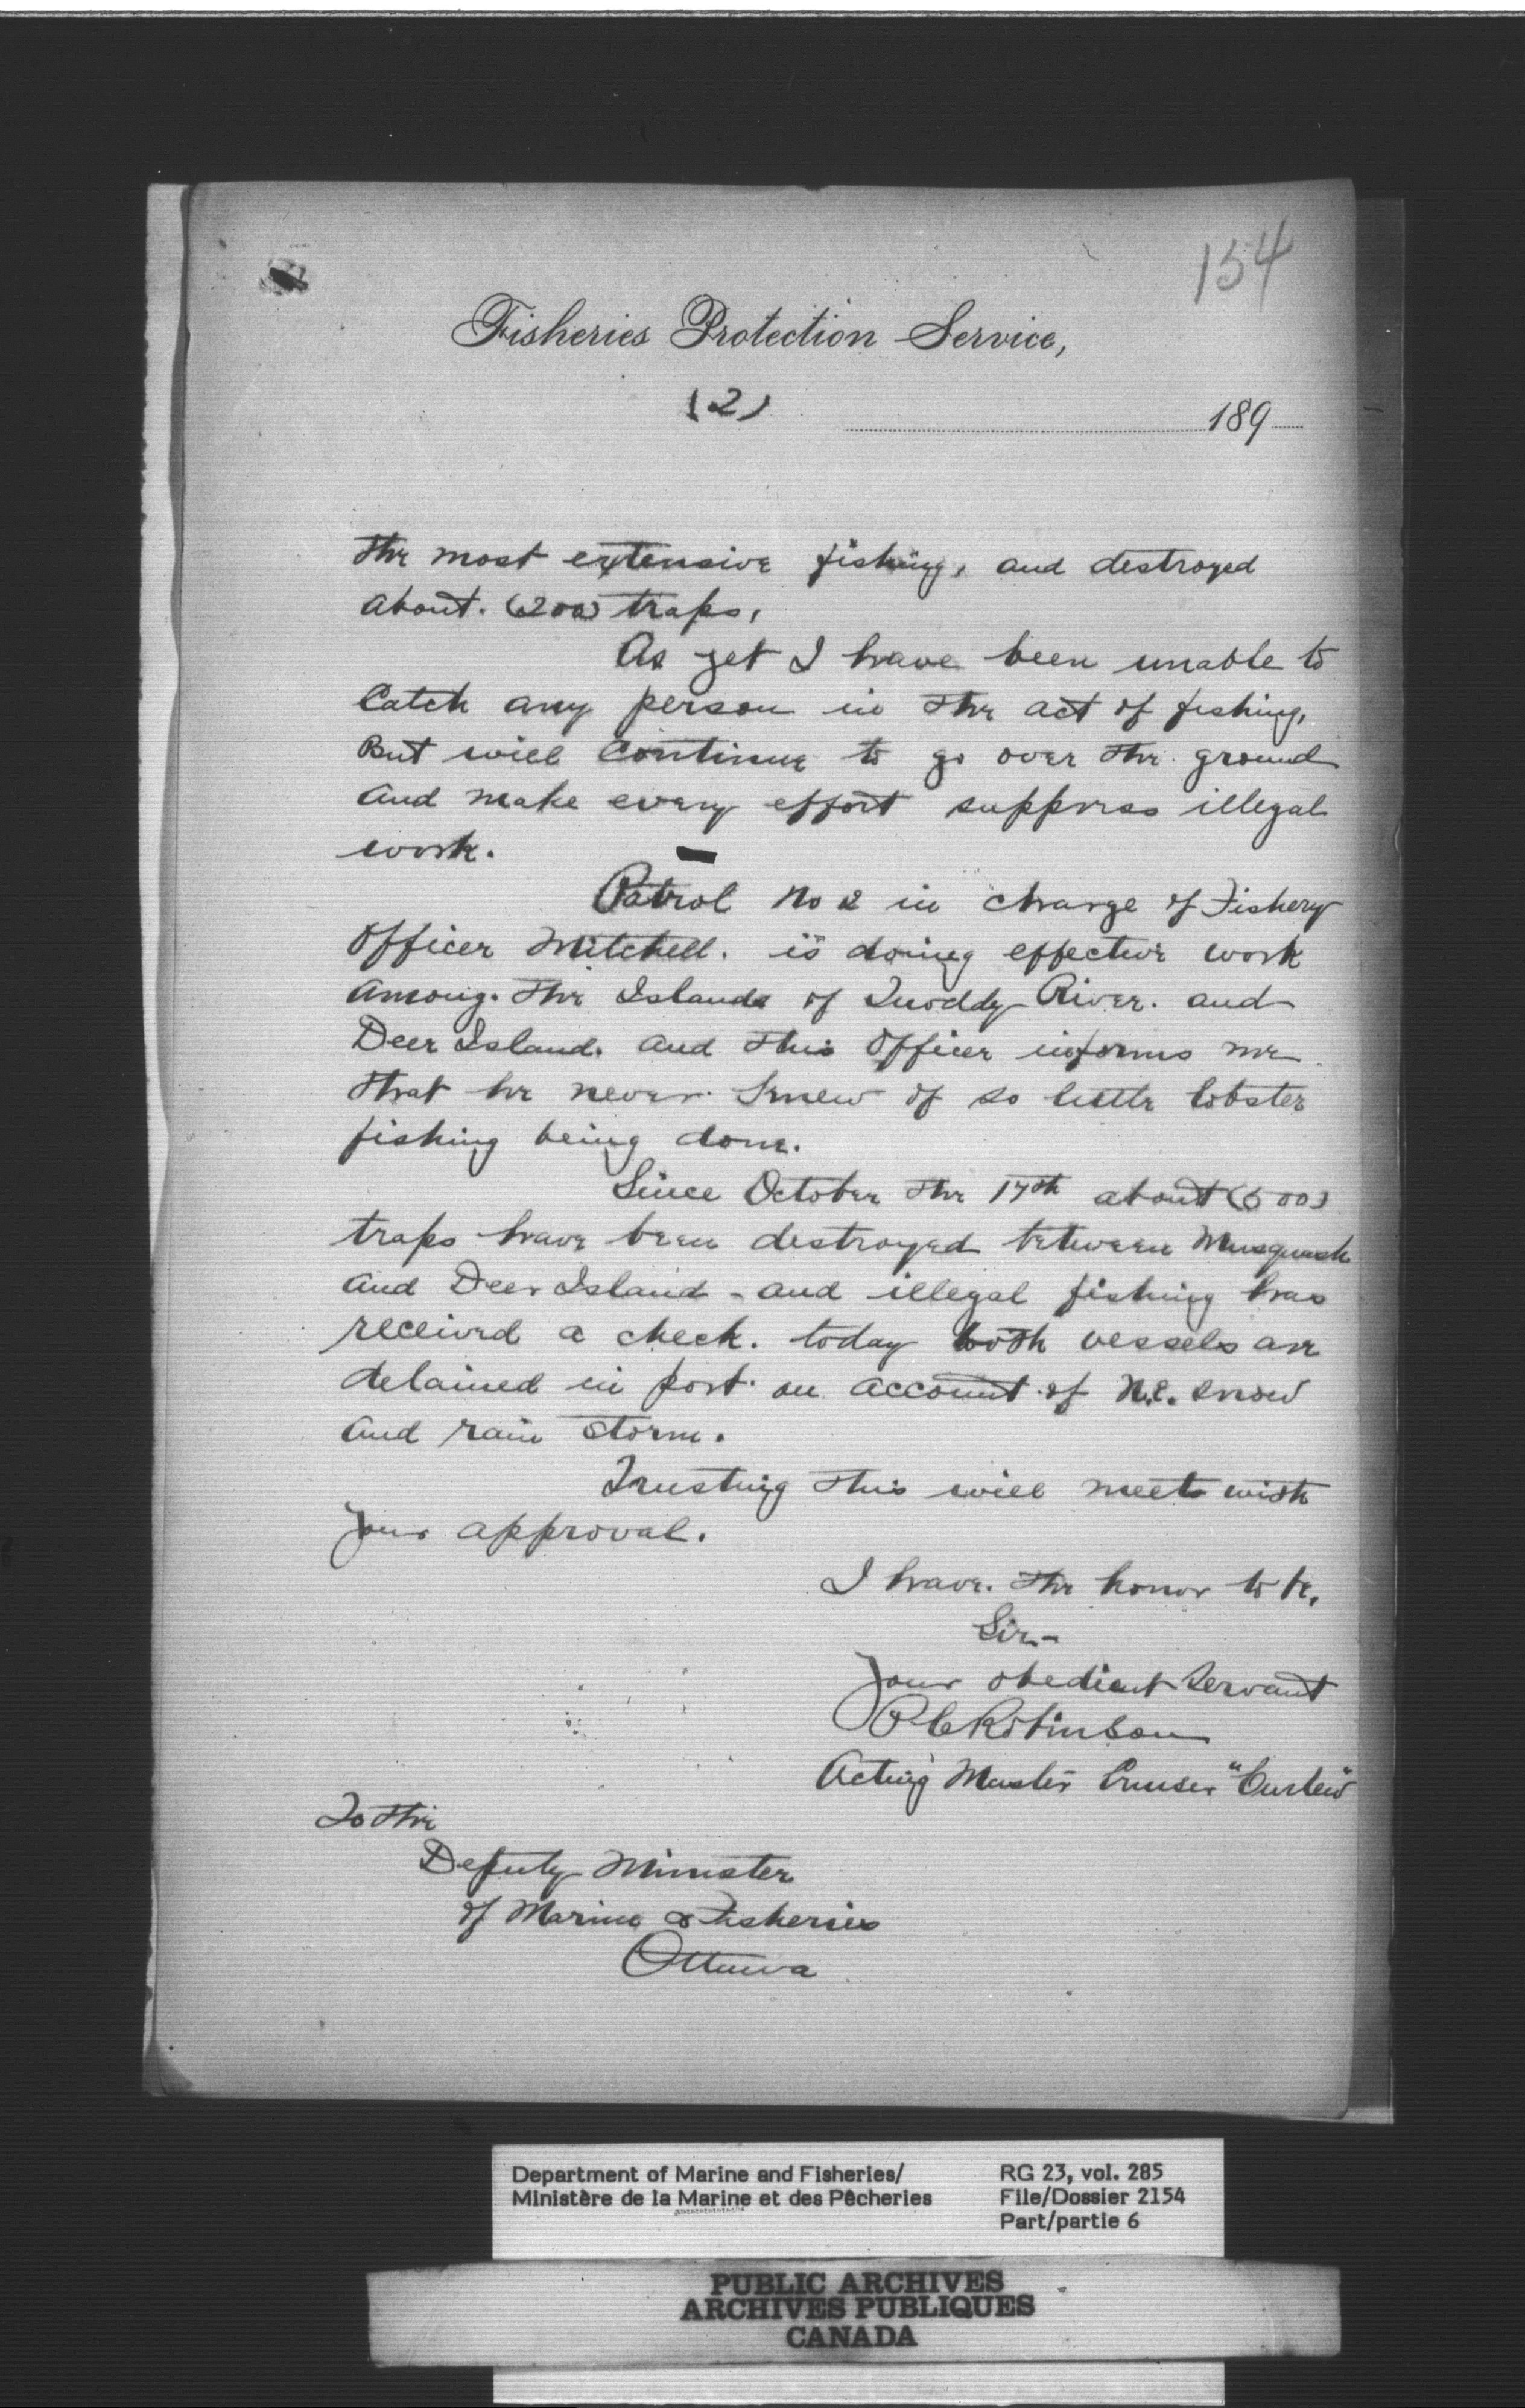 154
Fisheries Protection Service,
(2)
189
the most extensive fishing, and destroyed
about. (200) traps,
As yet I have been unable to
Catch any person in the act of fishing,
But will Continue to go over the ground
and make every effort suppress illegal
work.
Patrol No 2 in charge of Fishery
Officer Mitchell. is doing effective work
among. the Islands of Quoddy River. and
Deer Island. and this Officer informs me
that he never knew of so little lobster
fishing being done.
Since October the 17th about (500)
traps have been destroyed between Musquash
and Deer Island - and illegal fishing has
received a check. today both vessels are
detained in port. on account of N.E. snow
and rain storm.
Trusting this will meet with
your approval.
I have. the honor to be,
Sir-
Your obedient Servant
Robinson
Acting Master Cruiser "Curlew"
To the
Deputy Minister
of Marine & Fisheries
Ottawa
Department of Marine and Fisheries/
Ministère de la Marine et des Pêcheries
RG 23, vol. 285
File/Dossier 2154
Part/partie 6
PUBLIC ARCHIVES
ARCHIVES PUBLIQUES
CANADA